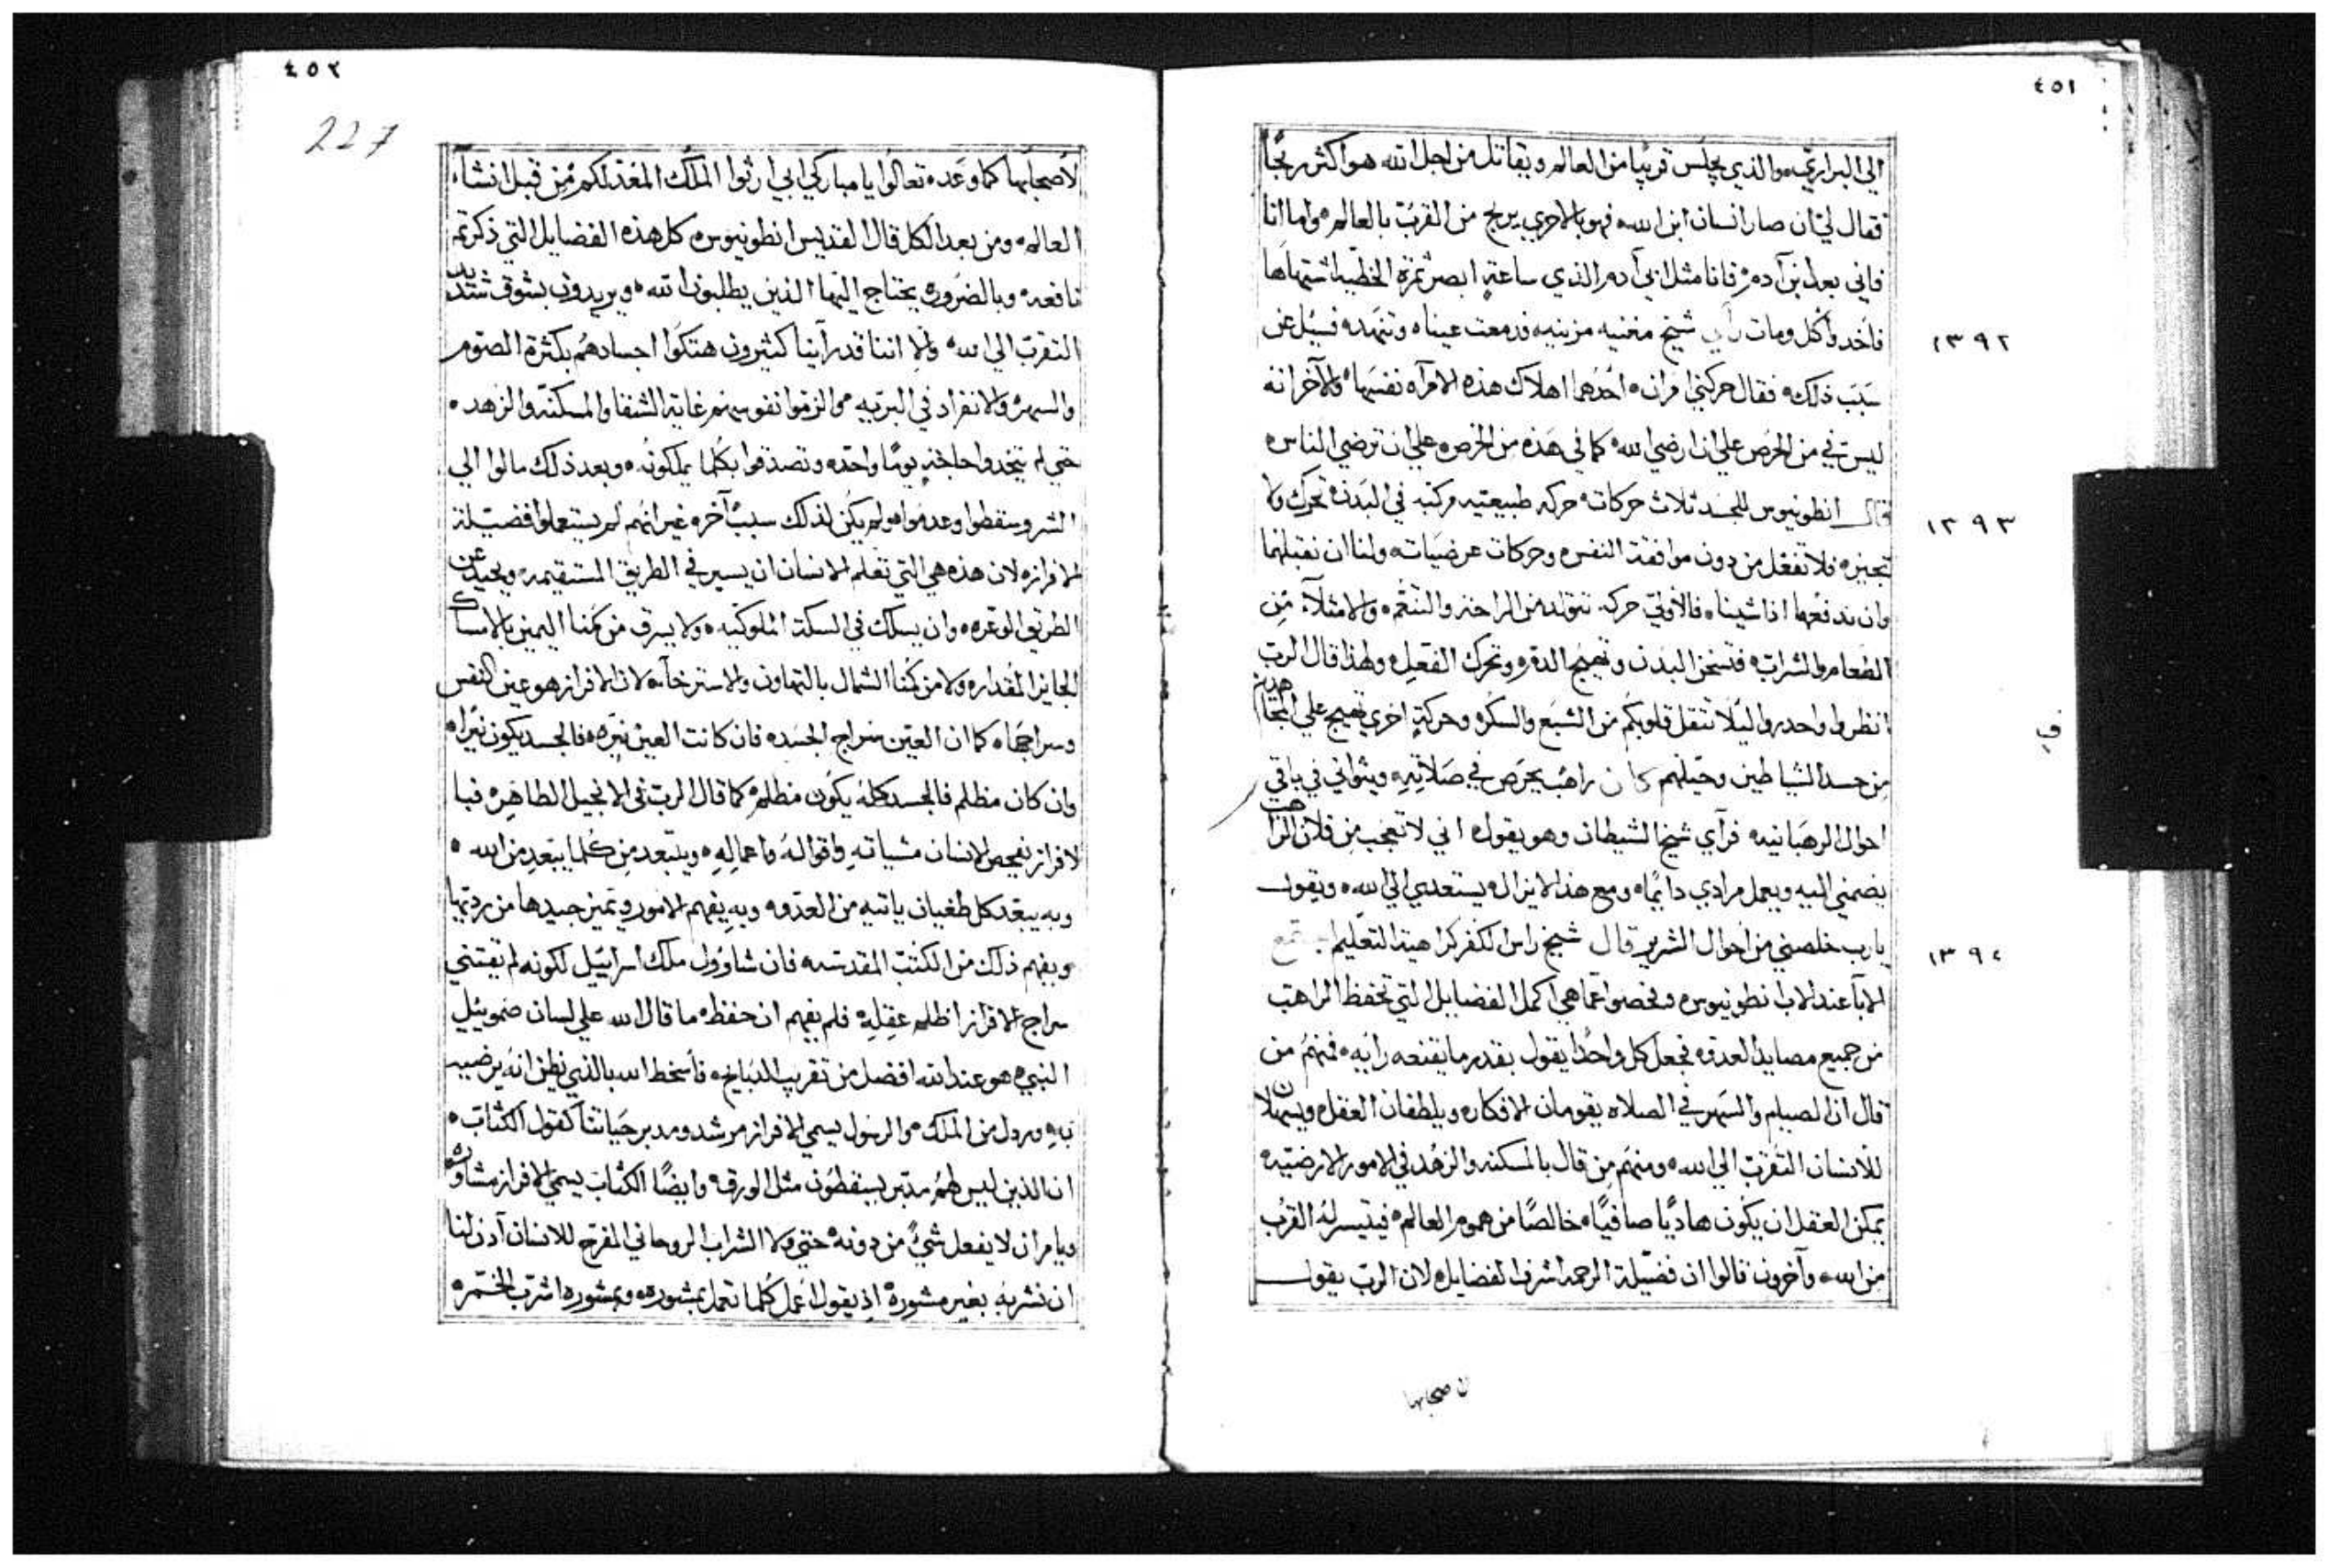 ٤٥١
الي البراري والذي يجلس قريبا من العالم ويقاتل من اجل الله هو اكثر ربحًا
فقال لي ان صار انسان ابن الله فهو بالاحري يربح من القرب بالعالم واما انا
فاني بعد ابن آدم فانا مثل ابي آدم الذي ساعة ابصر ثمرة الخطية اشتهاها
١٣٩٢
فاخد واكل ومات راي شيخ مغنيه مزينه فدمعت عيناه وتنهد فسيل عن
سبب ذلك فقال حركني امران احدهما اهلاك هذه الامرآه نفسها والآخر انه
ليس في من الحرص علي ان ارضي الله كما في هذه من الحرص علي ان ترضي الناس
١٣٩٣
قال انطونيوس للجسد ثلاث حركات حركه طبيعتيه مركبه في البدن تحرك ولا
تجيزه فلا تفعل من دون موافقة النفس وحركات عرضيات ولنا ان نقبلها
وان ندفعها اذا شيناه فالأولي حركه تتولد من الراحه والتنعم والامتلآ من
الطعام والشراب فتسخن البدن وتهيج الدم وتحرك الفعل ولهذا قال الرب
انظروا واحدروا ليلا تثقل قلوبكم من الشبع والسكر وحركة اخري تهيج علي المجاهدين
من حسد الشياطين وحيلهم كان راهب يحرص في صلاته ويتواني في باقي
احوال الرهبانيه فرآي شيخ الشيطان وهو يقول اني لاتعجب من فلان الراهب
يضمني اليه ويعمل مرادي دايمًا ومع هذا لا يزال يستعدي الي الله ويقول
١٣٩٤
يارب خلصني من احوال الشرير قال شيخ راس لكفركراهية التعليم اجتمع
الابآ عند الاب انطونيوس وفحصوا عما هي اكمل الفضايل التي تحفظ الراهب
من جميع مصايد العدو فجعل كل واحدًا يقول بقدر ما يقنعه رايه فمنهم من
قال ان الصيام والسهر في الصلاه يقومان الافكار ويلطفان العقل ويسهلان
للانسان التقرب الي الله ومنهم من قال بالمسكنه والزهد في الامور الارضيه
يمكن العقل ان يكون هاديًا صافيًا خالصًا من هموم العالم فيتيسر له القرب
من الله وآخرون قالوا ان فضيلة الرحمه اشرف الفضايل لان الرب يقول
لاصحابها
٤٥٢
227
لاصحابها كما وعده تعالوا يا مباركي ابي ارثوا الملك المعد لكم من قبل انشآء
العالم ومن بعد الكل قال القديس انطونيوس كل هذه الفضايل التي ذكرتم
نافعه وبالضروره يحتاج اليها الذين يطلبون الله ويريدون بشوق شديد
التقرب الي الله والا اننا قد رآينا كثيرون هتكوا اجسادهم بكثرة الصوم
والسهر والانفراد في البريه والزموا نفوسهم غاية الشقا والمسكنه والزهد
حتي لم يتخدوا حاجة يومًا واحده وتصدقوا بكلما يملكونه وبعد ذلك مالوا الي
الشر وسقطوا وعدموا ولم يكن لذلك سبب آخر غير انهم لم يستعملوا فضيلة
الافراز لان هذه هي التي تعلم الانسان ان يسير في الطريق المستقيمه ويحيد عن
الطريق الوعره وان يسلك في السكة الملوكيه ولا يسرق من كمنا اليمين بالامساك
الجايز المقدار ولا من كمنا الشمال بالتهاون والاسترخآ لان الافراز هو عين النفس
وسراجها كما ان العين سراج الجسد فان كانت العين نيره فالجسد يكون نيرا
وان كان مظلم فالجسد كله يكون مظلم كما قال الرب في الانجيل الطاهر فبا
لافراز يفحص الانسان مشياته واقواله واعماله ويبتعد من كلما يبتعد من الله
وبه يبعد كل طغيان ياتيه من العدو وبه يفهم الامور ويميز جيدها من رديها
ويفهم ذلك من الكتب المقدسه فان شاوول ملك اسراييل لكونه لم يقتني
سراج الافراز اظلم عقله فلم يفهم ان حفظ ما قال الله علي لسان صموييل
النبي هو عند الله افضل من تقريب الدبايح فاسخط الله بالذي يظن انه يرضيه
به ورذل من الملك والرسول يسمي الافراز مرشد ومدبر حياتنا كقول الكتاب
ان الذين ليس لهم مدبر يسقطون مثل الورق وايضًا الكتاب يسمي الافراز مشاوره
ويامر ان لا يفعل شيٌ من دونه حتي ولا الشراب الروحاني المفرح للانسان آدن لنا
ان نشربه بغير مشورة اذ يقول اعمل كلما تعمل بمشوره وبمشوره اشرب الخمره